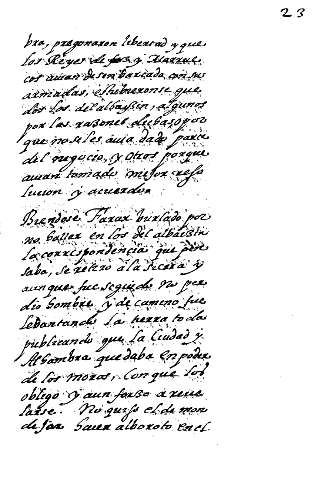 23
bra, pregonaron libertad y que
los Reyes de fez y Marrue
cos auian desembarcado con sus
armadas, estuuieronse que
dos los del albaicin, algunos
por las razones de baso por
que no se les auia dado parte
del negocio, y otros porque
auian tomado mejor reso
lucion y acuerdo.
Biendose Farax burlado por
no hallar en los del albaicin
la correspondencia que pen
saba, se retiro a la sierra y
aunque fue seguido no per
dio hombre y de camino fue
lebantando la tierra toda
publicando que la Ciudad y
Alhambra quedaba en poder
de los moros, con que los
obligo y aun forzo a reue
larse. No quiso el de mon
de Jar hacer alboroto en el